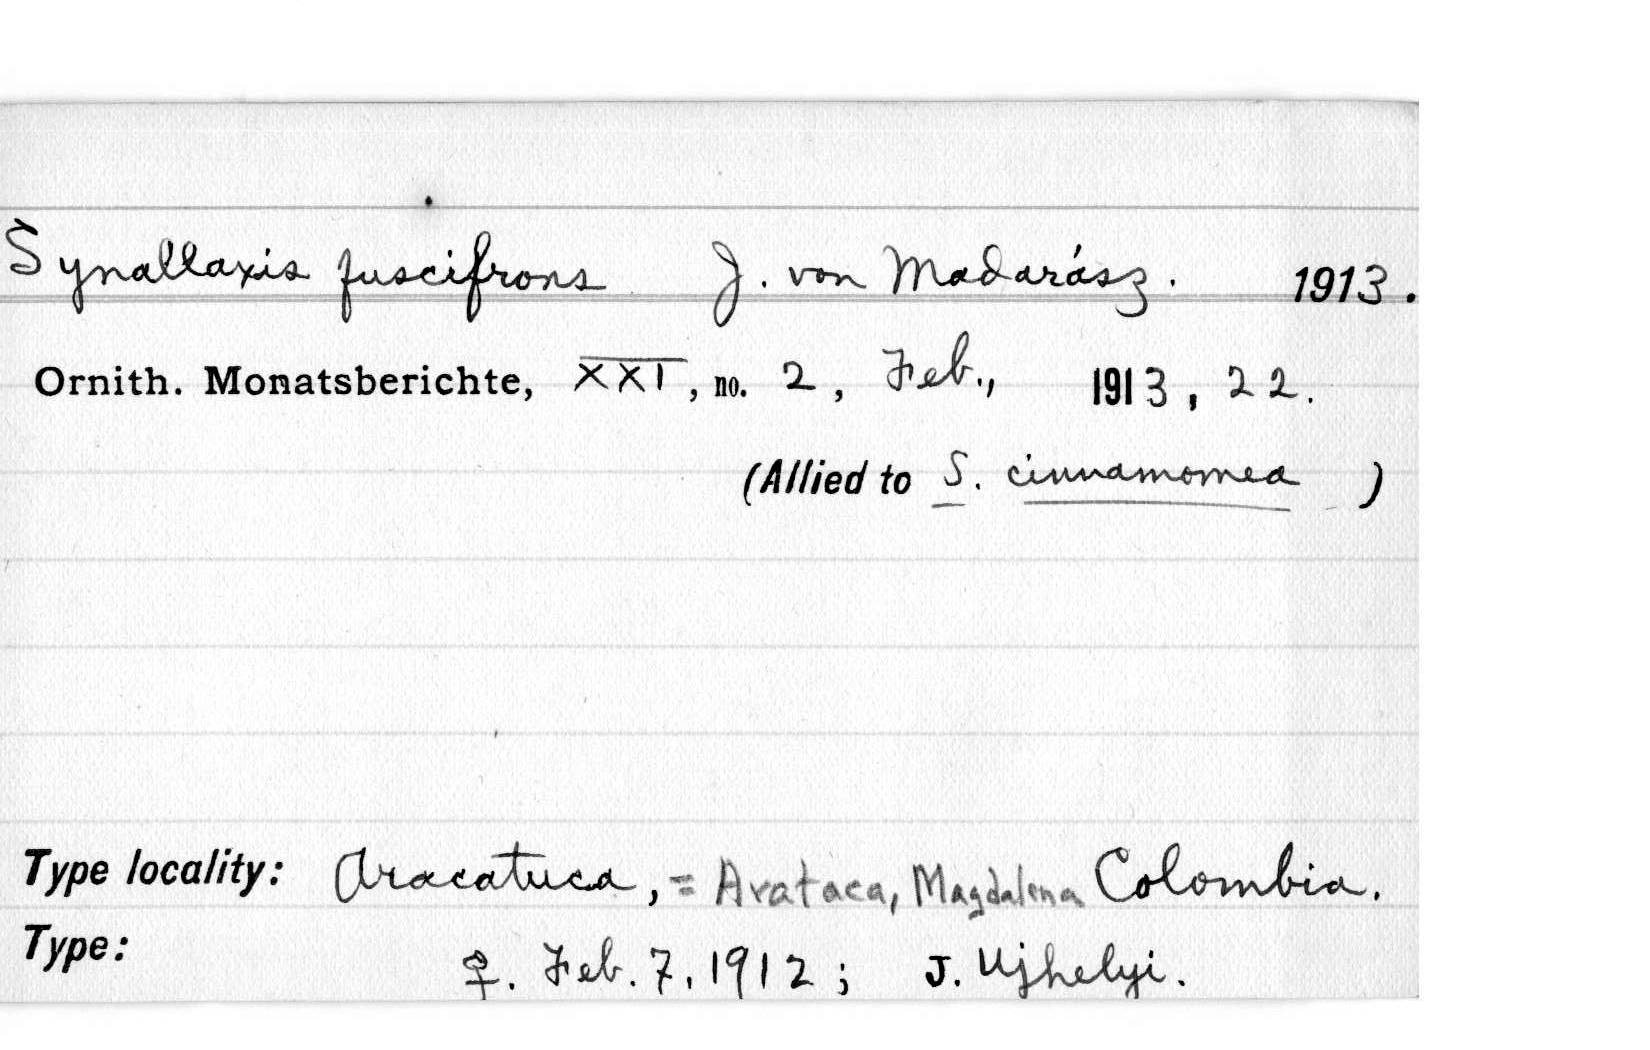 Synallaxis fuscifrons J. von Madarász. 1913.
Ornith. Monatsberichte, XXI, no. 2, Feb., 1913, 22.
(Allied to S. cinnamomea )
Type locality: Aracatuca, = Arataca, Magdalena Colombia.
Type: ♀. Feb. 7, 1912; J. Ujhelyi.